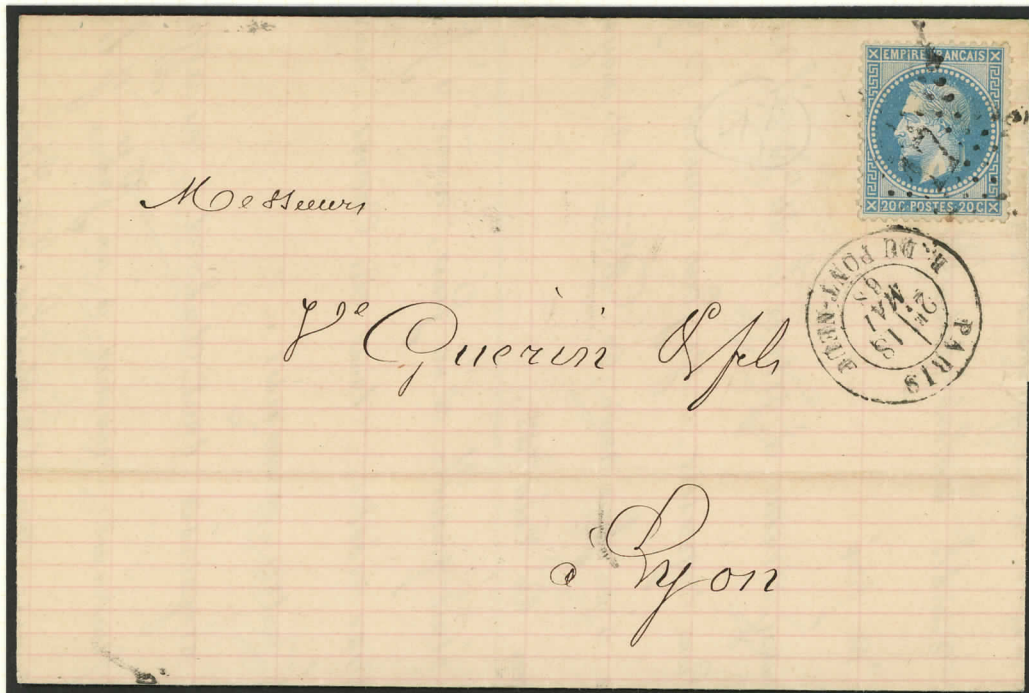 EMPIRE FRANÇAIS
17
20 C·POSTES·20 C
Messieurs
PARIS
R. DU PONT-NEUF
2E
18
MAI
68
Vve Guerin & fils
à Lyon